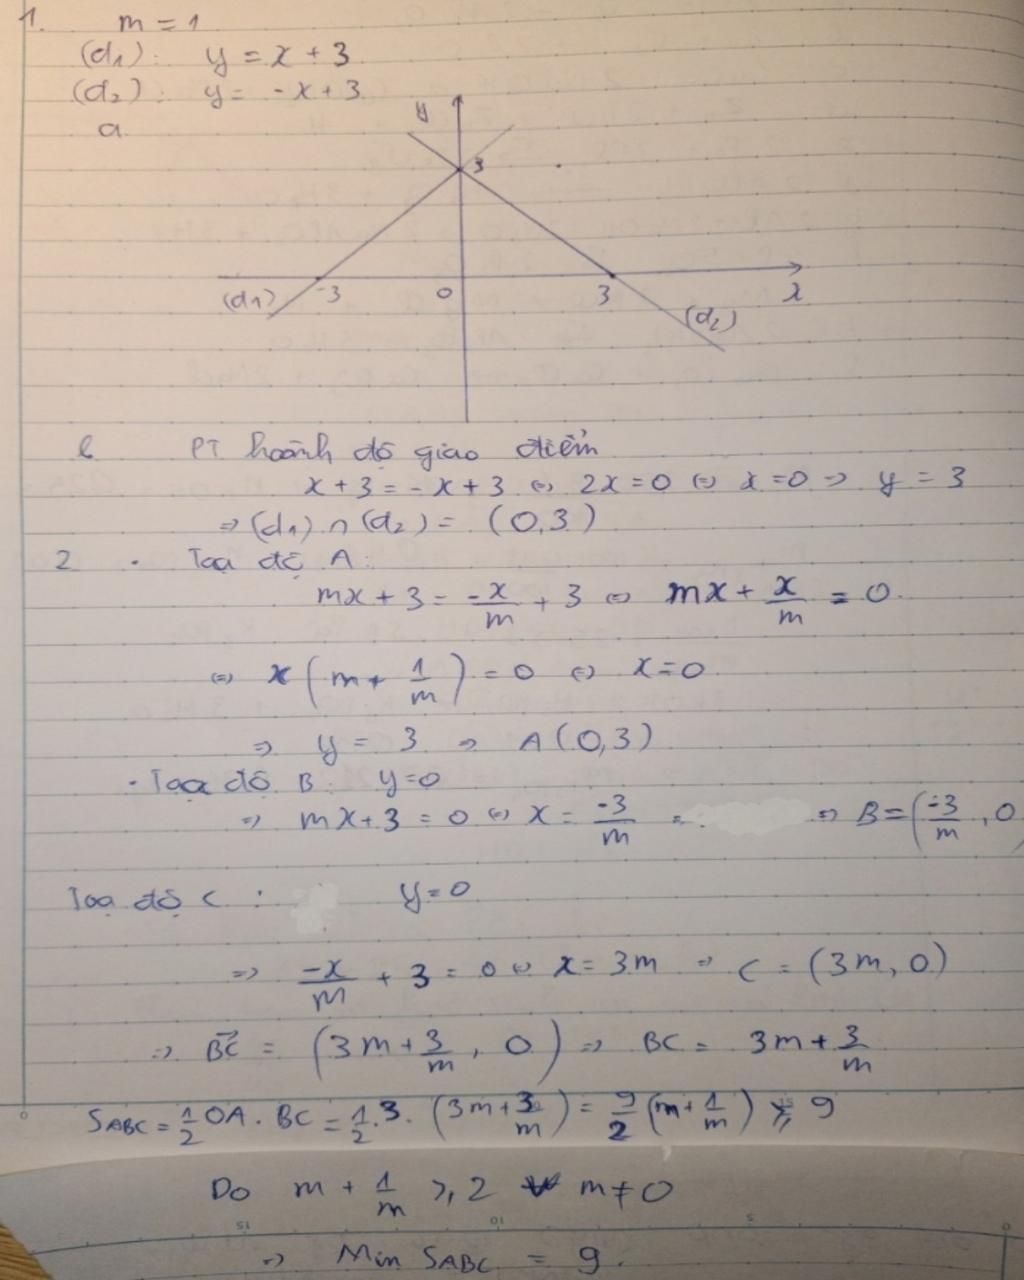 1. m = 1
(d1): y = x + 3
(d2): y = -x + 3
a
y
3
(d1) -3 0 3 x
(d2)
b PT hoành độ giao điểm
x + 3 = -x + 3 ⇔ 2x = 0 ⇔ x = 0 => y = 3
=> (d1) ∩ (d2) = (0,3)
2 . Toạ độ A:
mx + 3 = -x/m + 3 ⇔ mx + x/m = 0
⇔ x(m + 1/m) = 0 ⇔ x = 0
=> y = 3 => A(0,3)
. Toạ độ B: y=0
=> mx + 3 = 0 ⇔ x = -3/m => B = (-3/m, 0
Toạ độ C : y = 0
=> -x/m + 3 = 0 ⇔ x = 3m => C = (3m, 0)
=> BC→ = (3m + 3/m, 0) => BC = 3m + 3/m
SABC = 1/2 OA . BC = 1/2 . 3 . (3m + 3/m) = 9/2 (m + 1/m) ≥ 9
Do m + 1/m ≥ 2 ∀ m ≠ 0
=> Min SABC = 9.